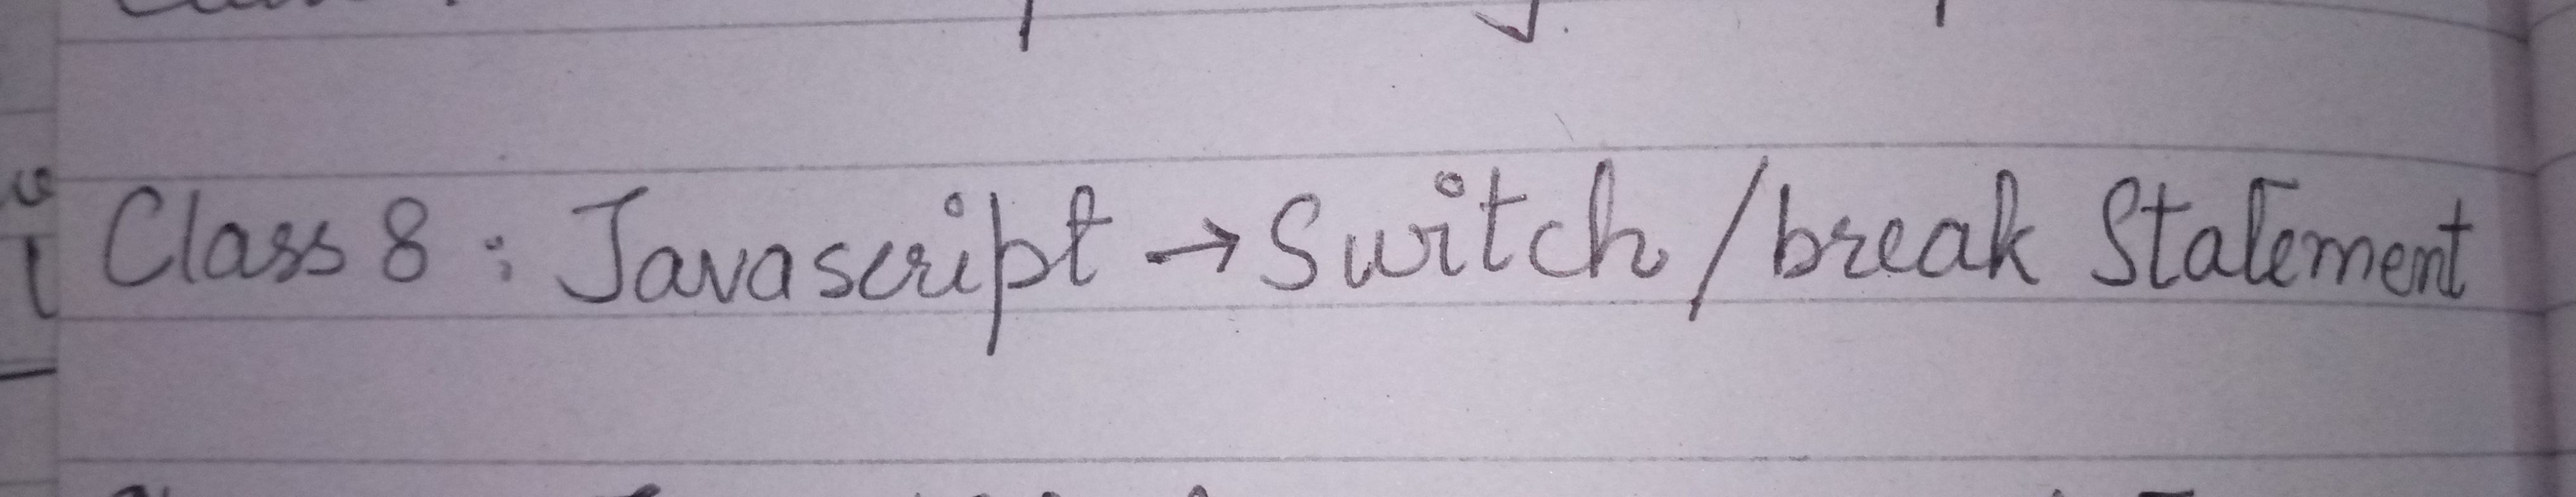 Class 8 : Javascript → Switch/break Statement